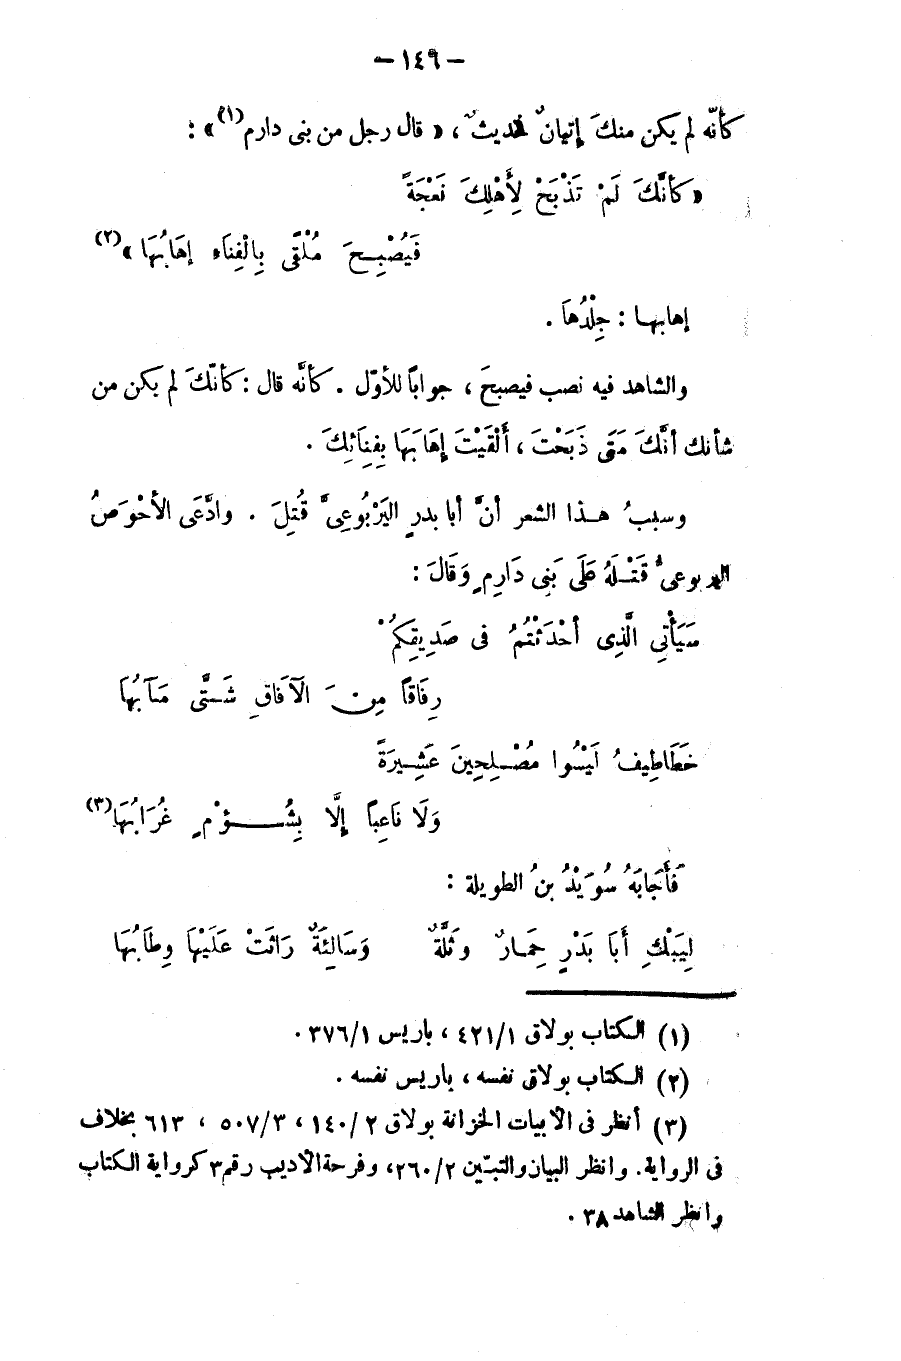 — ١٤٩ —
كأنّه لم يكن منكَ إتيانٌ فحديثٌ ، « قال رجل من بنى دارم (١) » :
« كأنَّكَ لَمْ تَذْبَحْ لِأَهْلِكَ نَعْجَةً
فَيُصْبِحَ مُلْقًى بِالْفِنَاءِ إِهَابُهَا » (٢)
إهابها : جِلْدُهَا .
والشاهد فيه نصب فيصبحَ ، جواباً للأوّل . كأنَّه قال : كأنّكَ لم يكن من
شأنك أنَّكَ مَتَى ذَبَحْتَ ، أَلْقَيْتَ إِهَابَهَا بِفِنَائِكَ .
وسببُ هذا الشعر أنَّ أبا بدرٍ اليَرْبُوعِىَّ قُتِلَ . وادَّعَى الأحْوَصُ
اليربوعىُّ قَتْلَهُ عَلَى بَنِى دَارِمٍ وَقَالَ :
سَيَأْتِي الَّذِى أحْدَثْتُمُ فى صَدِيقِكُمْ
رِفَاقاً مِنَ الآفَاقِ شَتَّى مَآبُهَا
خَطَاطِيفُ لَيْسُوا مُصْلِحِينَ عَشِيرَةً
وَلَا نَاعِباً إِلَّا بِشُؤْمٍ غُرَابُهَا (٣)
فَأَجَابَهُ سُوَيْدُ بنُ الطويلة :
لِيَبْكِ أَبَا بَدْرٍ حِمَارٌ وثَلَّةٌ وَسَالِئَةٌ رَاثَتْ عَلَيْهَا وِطَابُهَا
(١) الكتاب بولاق ٤٢١/١ ، باريس ٣٧٦/١ .
(٢) الكتاب بولاق نفسه ، باريس نفسه .
(٣) أنظر فى الأبيات الخزانة بولاق ١٤٠/٢ ، ٥٠٧/٣ ، ٦١٣ بخلاف
فى الرواية . وانظر البيان والتبيّن ٢٦٠/٢ ، وفرحة الأديب رقم ٣ كرواية الكتاب
وانظر الشاهد ٣٨ .